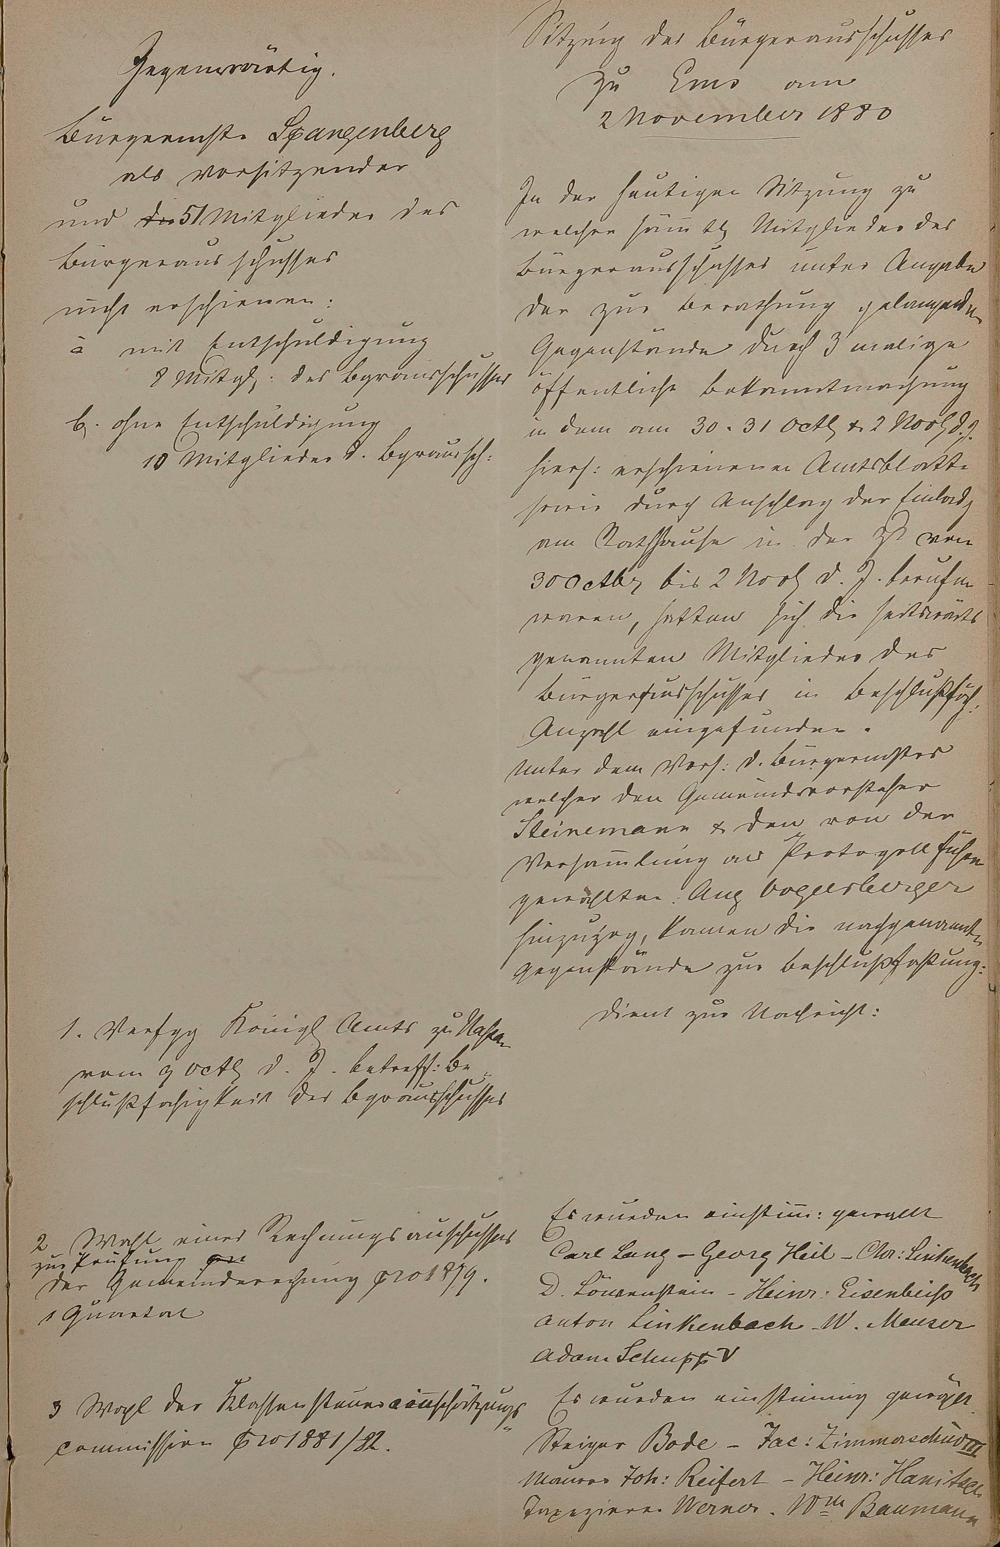 Gegenwärtig.
Bürgermstr. Spangenberg
als Vorsitzender
und die 51 Mitglieder des
Bürgerausschusses
nicht erschienen:
a mit Entschuldigung
8 Mitgl: des Bgrausschusses
b. ohne Entschuldigung
10 Mitglieder d. Bgraussch:
Sitzung des Bürgerausschusses
zu Ems am
2 November 1880
In der heutigen Sitzung zu
welcher sämtl Mitglieder des
Bürgerausschusses unter Angabe
der zur Berathung gelangenden
Gegenstände durch 3 malige
öffentliche Bekanntmachung
in dem am 30. 31 Octb & 2 Novb d. J.
hies: erschienenen Amtsblatte
sowie durch Anschlag der Einladg
am Rathhause in der Zt von
30 Octbr bis 2 Novb d. J. berufen
waren, hatten sich die seitwärts
genannten Mitglieder des
Bürgerausschusses in beschlußfäh:
Anzahl eingefunden.
Unter dem Vors: d. Bürgermstrs
welcher den Gemeindevorsteher
Steinemann & den von der
Versammlung als Protocollführer
gewählten Aug Vogelsberger
hinzuzog, kamen die nachgenannten
Gegenstände zur Beschlußfaßung:
1. Verfgg Königl Amts zu Nassau
vom 9 Octb d. J. betreff: Be-
schlußfähigkeit des Bgrausschusses
dient zur Nachricht:
2 Wahl eines Rechnungsauschusses
zur Prüfung
der Gemeinderechnung pro 1879.
1 Quartal
Es wurden einstim: gewählt
Carl Lang - Georg Heil - Chr: Linkenbach
D. Löwenstein - Heinr: Eisenbeiß
Anton Linkenbach W. Mauser
Adam Schupp V
3 Wahl der Klassensteuereinschätzungs
commission pro 1881/82.
Es wurden einstimmig gewählt
Steiger Bode - Jac: Zimmerschied III
Maurer Joh: Reifert - Heinr: Hanitsch
Tapezierer Werner. Wm Baumann